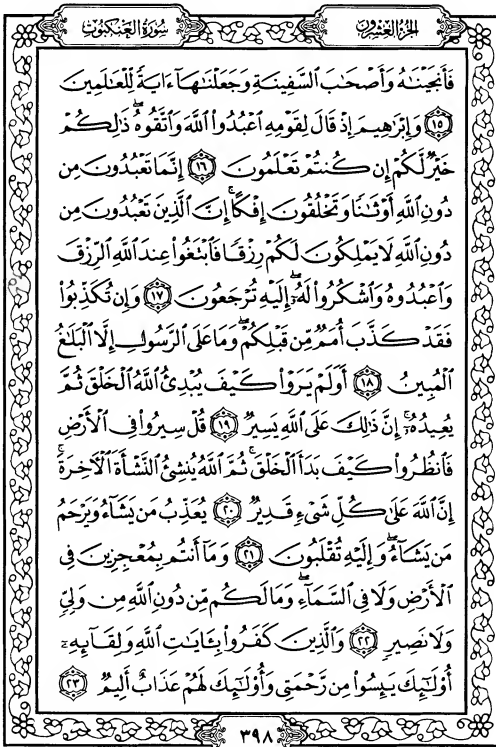 سُورَةُ العَنكَبُوتِ
الجُزْءُ العِشْرُونَ
فَأَنجَيْنَٰهُ وَأَصْحَٰبَ ٱلسَّفِينَةِ وَجَعَلْنَٰهَآ ءَايَةً لِّلْعَٰلَمِينَ
﴿١٥﴾ وَإِبْرَٰهِيمَ إِذْ قَالَ لِقَوْمِهِ ٱعْبُدُوا۟ ٱللَّهَ وَٱتَّقُوهُ ۖ ذَٰلِكُمْ
خَيْرٌ لَّكُمْ إِن كُنتُمْ تَعْلَمُونَ ﴿١٦﴾ إِنَّمَا تَعْبُدُونَ مِن
دُونِ ٱللَّهِ أَوْثَٰنًا وَتَخْلُقُونَ إِفْكًا ۚ إِنَّ ٱلَّذِينَ تَعْبُدُونَ مِن
دُونِ ٱللَّهِ لَا يَمْلِكُونَ لَكُمْ رِزْقًا فَٱبْتَغُوا۟ عِندَ ٱللَّهِ ٱلرِّزْقَ
وَٱعْبُدُوهُ وَٱشْكُرُوا۟ لَهُۥٓ ۖ إِلَيْهِ تُرْجَعُونَ ﴿١٧﴾ وَإِن تُكَذِّبُوا۟
فَقَدْ كَذَّبَ أُمَمٌ مِّن قَبْلِكُمْ ۖ وَمَا عَلَى ٱلرَّسُولِ إِلَّا ٱلْبَلَٰغُ
ٱلْمُبِينُ ﴿١٨﴾ أَوَلَمْ يَرَوْا۟ كَيْفَ يُبْدِئُ ٱللَّهُ ٱلْخَلْقَ ثُمَّ
يُعِيدُهُۥٓ ۚ إِنَّ ذَٰلِكَ عَلَى ٱللَّهِ يَسِيرٌ ﴿١٩﴾ قُلْ سِيرُوا۟ فِى ٱلْأَرْضِ
فَٱنظُرُوا۟ كَيْفَ بَدَأَ ٱلْخَلْقَ ۚ ثُمَّ ٱللَّهُ يُنشِئُ ٱلنَّشْأَةَ ٱلْءَاخِرَةَ ۚ
إِنَّ ٱللَّهَ عَلَىٰ كُلِّ شَىْءٍ قَدِيرٌ ﴿٢٠﴾ يُعَذِّبُ مَن يَشَآءُ وَيَرْحَمُ
مَن يَشَآءُ ۖ وَإِلَيْهِ تُقْلَبُونَ ﴿٢١﴾ وَمَآ أَنتُم بِمُعْجِزِينَ فِى
ٱلْأَرْضِ وَلَا فِى ٱلسَّمَآءِ ۖ وَمَا لَكُم مِّن دُونِ ٱللَّهِ مِن وَلِىٍّ
وَلَا نَصِيرٍ ﴿٢٢﴾ وَٱلَّذِينَ كَفَرُوا۟ بِـَٔايَٰتِ ٱللَّهِ وَلِقَآئِهِۦٓ
أُو۟لَٰٓئِكَ يَئِسُوا۟ مِن رَّحْمَتِى وَأُو۟لَٰٓئِكَ لَهُمْ عَذَابٌ أَلِيمٌ ﴿٢٣﴾
٣٩٨